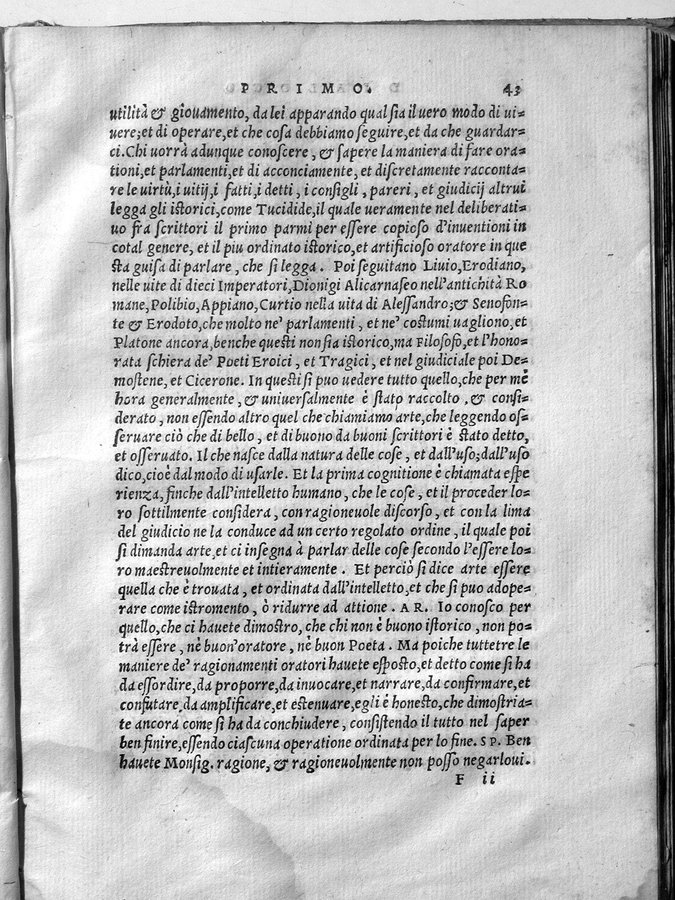 PRIMO. 43
utilità & giovamento, da lei apparando qual sia il uero modo di ui=
uere; et di operare, et che cosa debbiamo seguire, et da che guardar=
ci. Chi uorrà adunque conoscere, & sapere la maniera di fare ora=
tioni, et parlamenti, et di acconciamente, et discretamente racconta=
re le uirtù, i uitij, i fatti, i detti, i consigli, pareri, et giudicij altrui
legga gli istorici, come Tucidide, il quale ueramente nel deliberati=
uo fra scrittori il primo parmi per essere copioso d'inuentioni in
cotal genere, et il piu ordinato istorico, et artificioso oratore in que
sta guisa di parlare, che si legga. Poi seguitano Liuio, Erodiano,
nelle uite di dieci Imperatori, Dionigi Alicarnaseo nell'antichità Ro
mane, Polibio, Appiano, Curtio nella uita di Alessandro; & Senofon=
te & Erodoto, che molto ne' parlamenti, et ne' costumi uagliono, et
Platone ancora, benche questi non sia istorico, ma Filosofo, et l'hono=
rata schiera de' Poeti Eroici, et Tragici, et nel giudiciale poi De=
mostene, et Cicerone. In questi si puo uedere tutto quello, che per mē
hora generalmente, & uniuersalmente è stato raccolto, & consi=
derato, non essendo altro quel che chiamiamo arte, che leggendo os=
seruare ciò che di bello, et di buono da buoni scrittori è stato detto,
et osseruato. Il che nasce dalla natura delle cose, et dall'uso; dall'uso
dico, cioè dal modo di usarle. Et la prima cognitione è chiamata espe=
rienza, finche dall'intelletto humano, che le cose, et il proceder lo=
ro sottilmente considera, con ragioneuole discorso, et con la lima
del giudicio ne la conduce ad un certo regolato ordine, il quale poi
si dimanda arte, et ci insegna à parlar delle cose secondo l'essere lo=
ro maestreuolmente et intieramente. Et perciò si dice arte essere
quella che è trouata, et ordinata dall'intelletto, et che si puo adope=
rare come istromento, ò ridurre ad attione. AR. Io conosco per
quello, che ci hauete dimostro, che chi non è buono istorico, non po=
trà essere, nè buon'oratore, nè buon Poeta. Ma poiche tuttetre le
maniere de' ragionamenti oratori hauete esposto, et detto come si ha
da essordire, da proporre, da inuocare, et narrare, da confirmare, et
confutare, da amplificare, et estenuare, egli è honesto, che dimostria=
te ancora come si ha da conchiudere, consistendo il tutto nel saper
ben finire, essendo ciascuna operatione ordinata per lo fine. SP. Ben
hauete Monsig. ragione, & ragioneuolmente non posso negarloui.
F ii